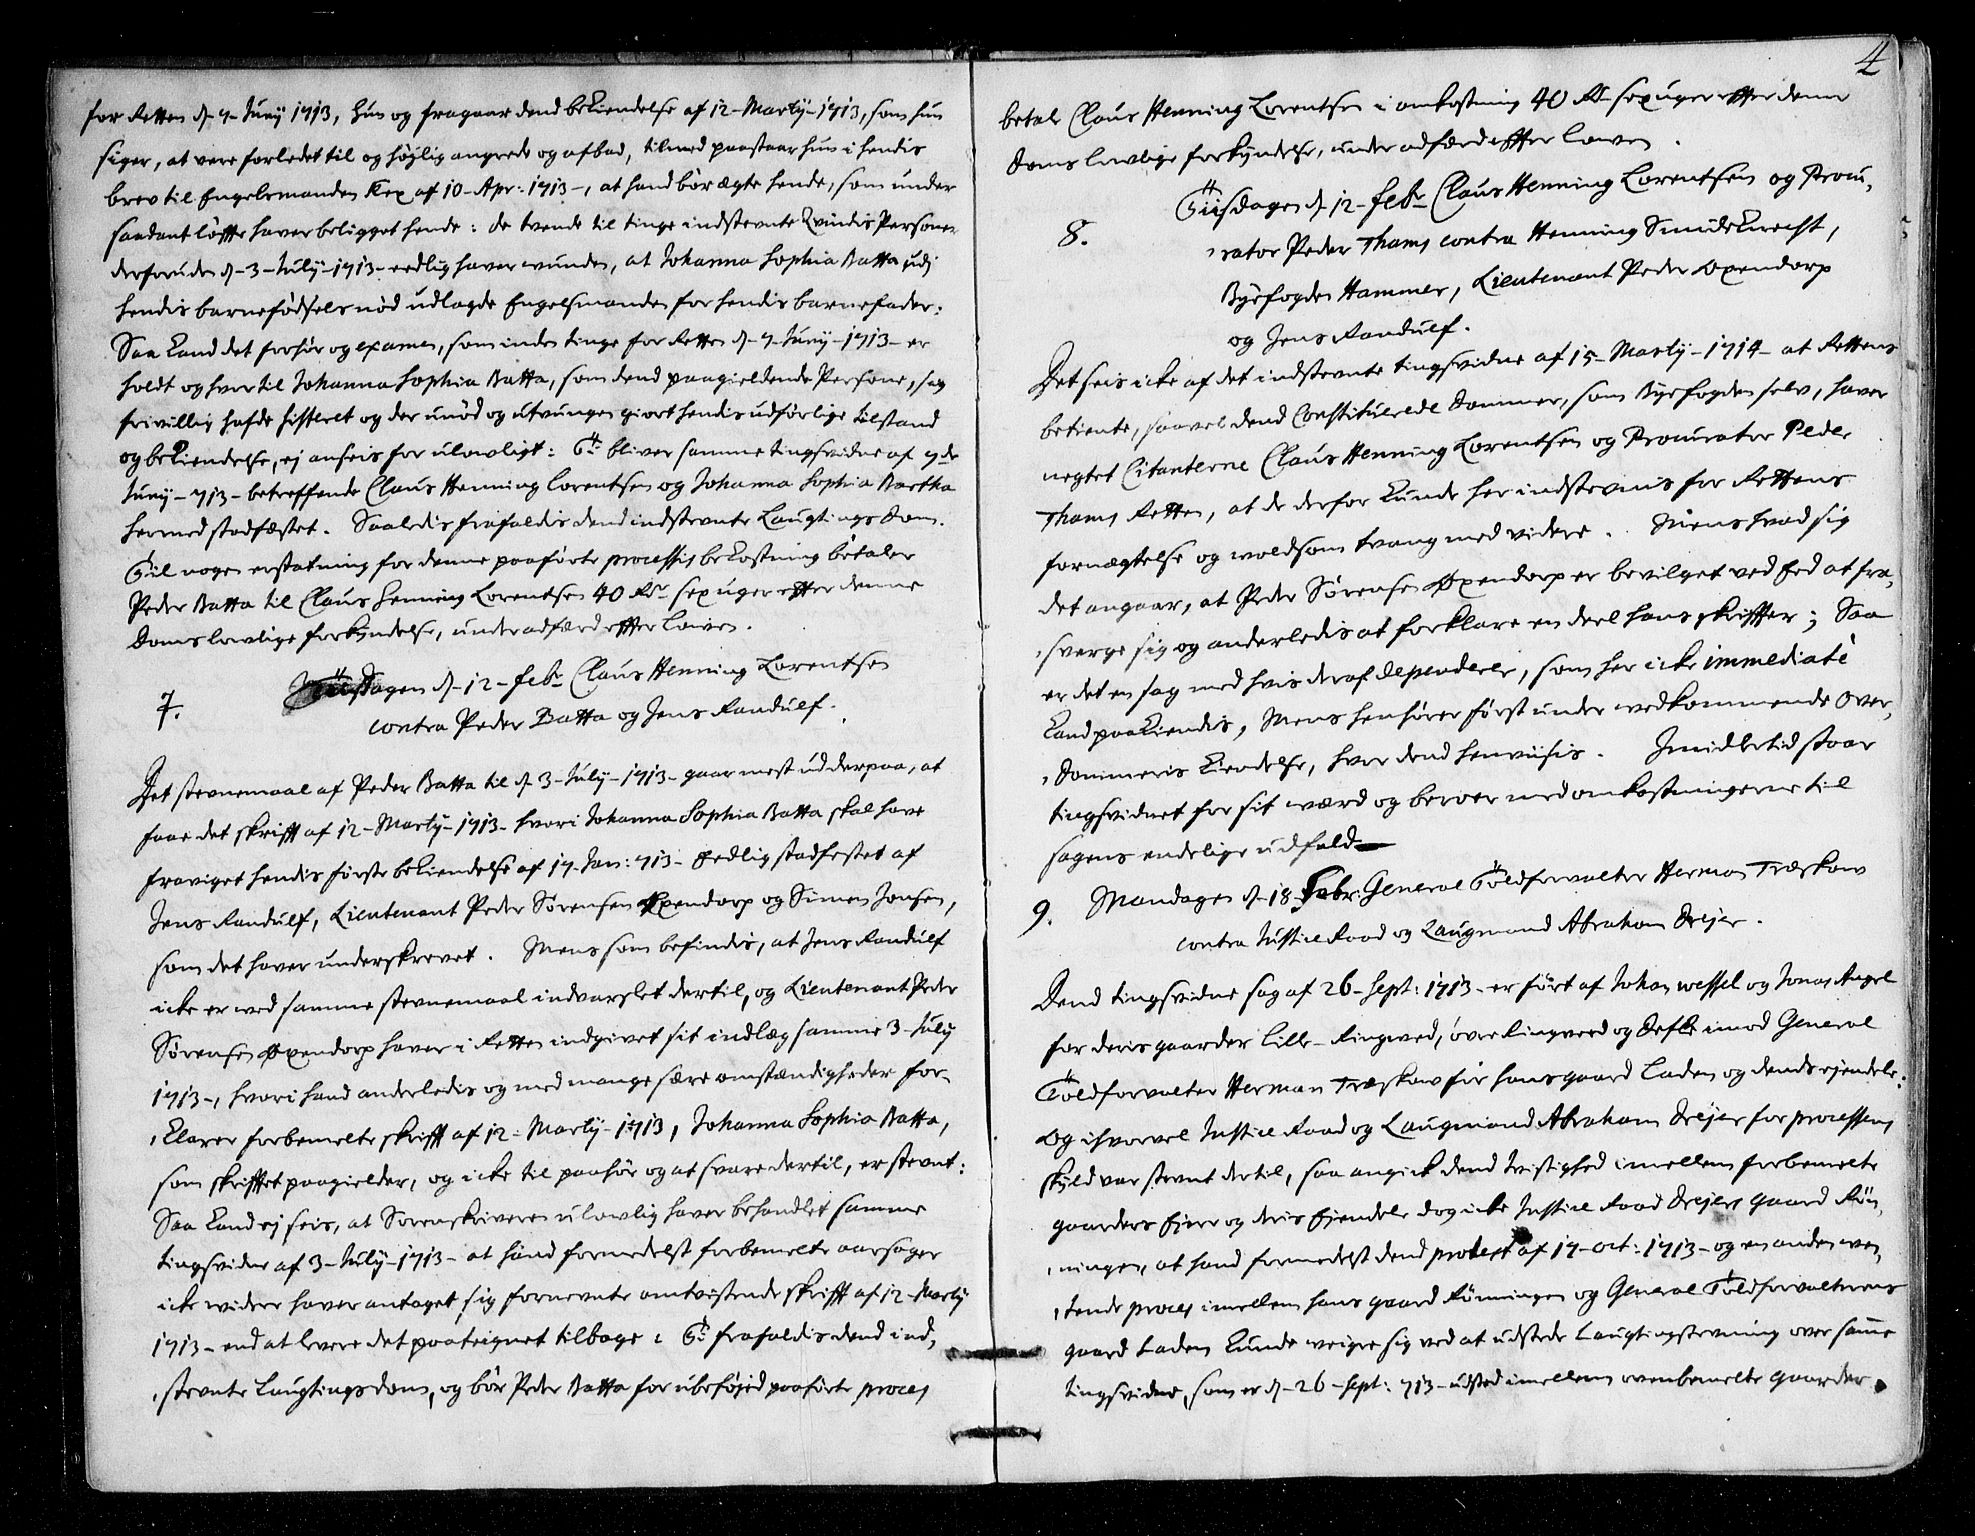 for Retten d. 7 Juny 1713, hun og fragaar dend bekiendelse af 12 Marty 1713, som hun
siger, at vere forledet til og höylig angrede og afbad, tilmed paastaar hun i hendis
brev til Engelsmanden Kex af 10 Apr: 1713, at hand bör ægte hende, som under
saadant löffte haver beligget hende: de tvende til tinge indstevnte Qvindis Personer
derforuden d. 3 July 1713 eedlig haver wunden, at Johanna Sophia Batta udj
hendis barnefödsels nöd udlagde Engelsmanden for hendis barnefader:
Saa kand det forhör og examen, som inden tinge for Retten d. 7 Juny 1713 er
holdt og hvortil Johanna Sophia Batta, som dend paagieldende Persone, sag
frivillig hafde sisteret og der unöd og utvungen giort hendis udförlige tilstand
og bekiendelse, ej ansees for ulowligt: Ti bliver samme tingsvidne af 7de
Juny 713 betreffende Claus Henning Lorentsen og Johanna Sophia Bartha
hermed stadfæstet. Saaledis frafaldis dend indstevnte Laugtings dom.
Til nogen erstatning for denne paaförte processis bekostning betaler
Peder Batta til Claus Henning Lorentsen 40 Rdr sex uger effter denne
Doms lowlige forkyndelse, under adfærd effter lowen.
7. Tiisdagen d. 12 Febr Claus Henning Lorentsen
contra Peder Batta og Jens Randulf.
Det stevnemaal af Peder Batta til d. 3 July 1713 gaar mest ud derpaa, at
faae det skrifft af 12 Marty 1713 hvori Johanna Sophia Batta skal have
fraviget hendis förste bekiendelse af 17 Jan: 713 Eedlig stadfestet af
Jens Randulf, Lieutenant Peder Sörensen Oxendorp og Simen Jonsen,
som det haver underskrevet. Mens som befindis, at Jens Randulf
icke er ved samme stevnemaal indvarslet dertil, og Lieutenant Peder
Sörensen Oxendorp haver i Retten indgivet sit indlæg samme 3 July
1713, hvori hand anderledis og med mange fære omstændigheder for-
klarer forbemelte skrifft af 12 Marty 1713, Johanna Sophia Batta,
som skrifftet paagielder, og icke til paahör og at svare dertil, er stevnt:
Saa kand ej seis, at Sorenskriveren ulowlig haver behandlet samme
tingsvidne af 3 July 1713 at hand formedelst forbemelte aarsager
icke widere haver antaget sig fornevnte omtvistende skrifft af 12 Marty
1713 end at levere det paateignet tilbage: Ti frafaldis dend ind-
stevnte Laugtings dom, og bör Peder Batta for ubeföjed paaförte proces
4
betale Claus Henning Lorentsen i omkostning 40 Rdr sex uger effter denne
Doms lowlige forkyndelse, under adfærd effter lowen.
8. Tiisdagen d. 12 Febr Claus Henning Lorentsen og Procu-
rator Peder Thams contra Henning Smideknecht,
Byefogden Hammer, Lieutenant Peder Oxendorp
og Jens Randulf.
Det seis icke af det indstevnte tingsvidne af 15 Marty 1714 at Rettens
betiente, saavel dend Constituerede Dommer, som Byefogden selv, haver
negtet Citanterne Claus Henning Lorentsen og Procurator Peder
Thams Retten, at de derfor kunde her indstevnis for Rettens
fornegtelse og woldsom twang med videre. Mens hvad sig
det angaar, at Peder Sörensen Oxendorp er bevilget ved Eed at fra-
sverge sig og anderledis at forklare en deel hans skriffter; Saa
er det en sag med hvis deraf dependerer, som her icke immediatè
kand paakiendis, Mens henhörer först under vedkommende Over-
Dommeris kiendelse, hvor dend henviisis. Jmidlertid staar
tingsvidnet for sit wærd og beroer med omkostningerne til
sagens endelige udfald
9. Mandagen d. 18 Febr. General Toldforvalter Herman Træskow
contra Justice Raad og Laugmand Abraham Drejer.
Dend tingsvidne sag af 26 Sept: 1713 er fört af Johan Wessel og Jonas Angel
for deris gaarder Lille-Ringved, övre Ringveed og Defle imod General
Toldforvalter Herman Træskow for hans gaard Laden og dends ejendele:
Og ihvorvel Justice Raad og Laugmand Abraham Drejer for processens
skyld var stevnt dertil, saa angick dend tvistighed imellem forbemelte
gaarders Ejere og deris Ejendele dog icke Justice Raad Drejers gaard Rön-
ningen, at hand formedelst dend protest af 17 Oct: 1713 og en anden ven-
tende proces imellem hans gaard Rönningen og General Toldforvalterens
gaard Laden kunde weigre sig ved at udstede Laugtingstevning over same
tingsvidne, som er d. 26 Sept: 713 udsted imellem ovenbemelte gaarder.